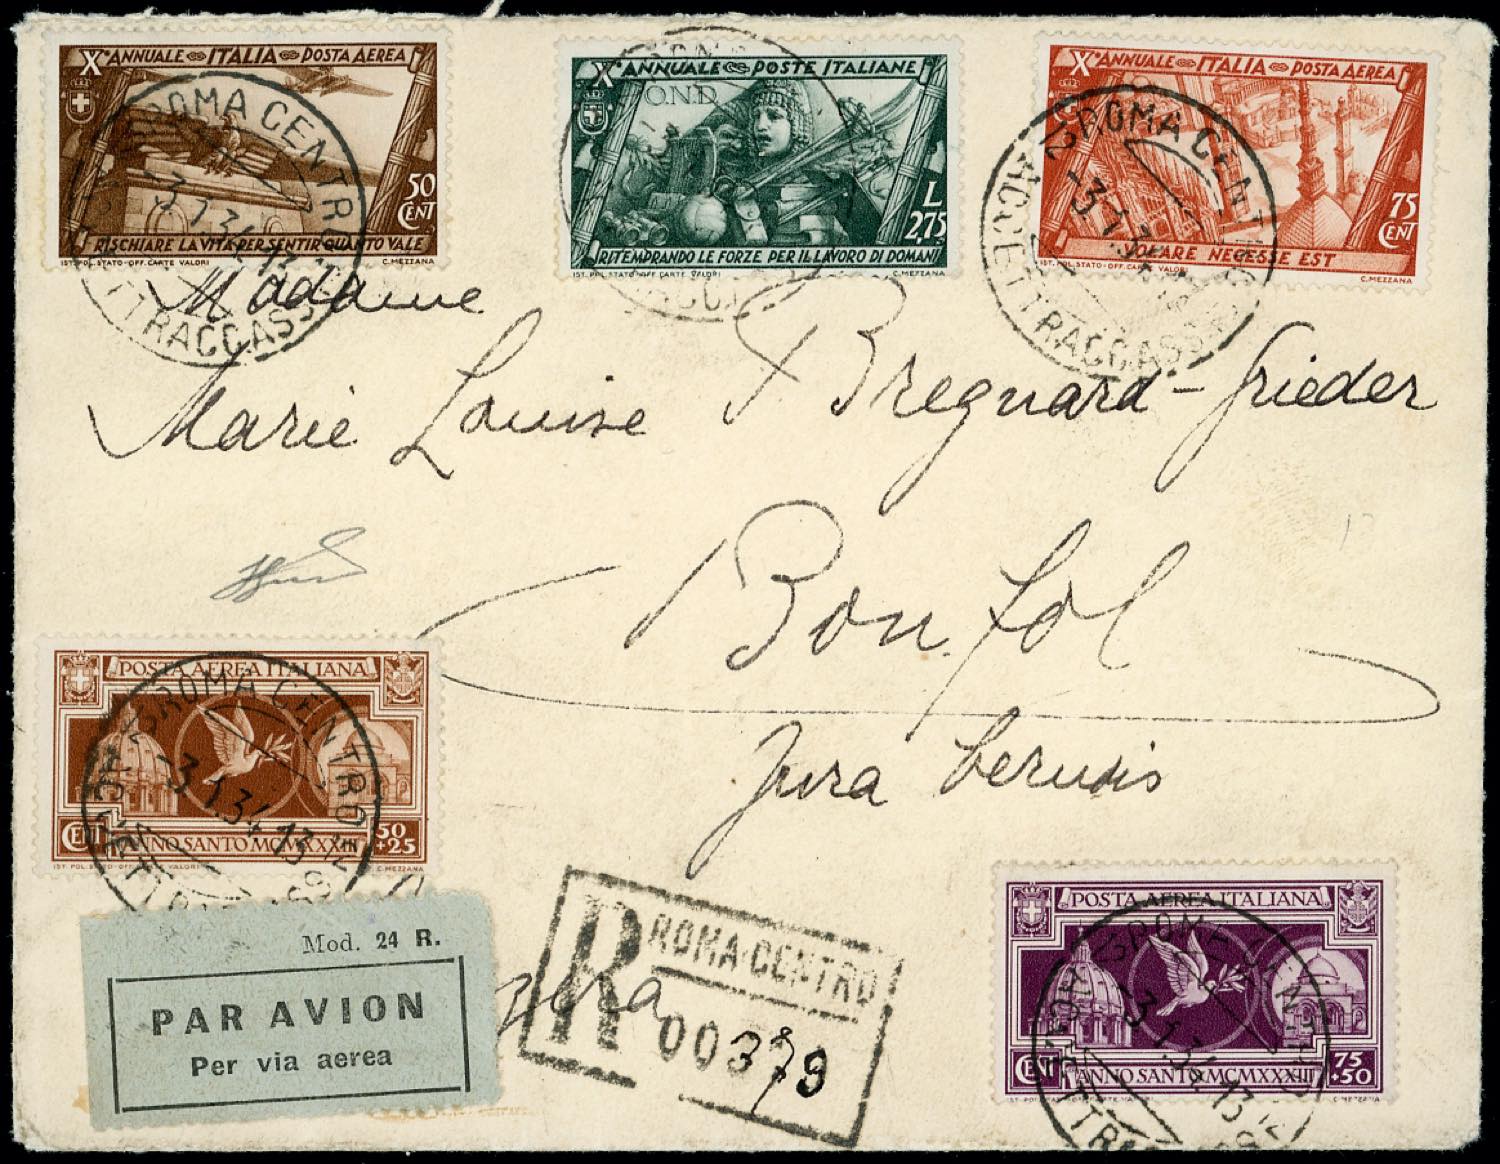 X° ANNUALE ITALIA POSTA AEREA
50 CENT
RISCHIARE LA VITA PER SENTIR QUANTO VALE
IST. POL. STATO-OFF. CARTE VALORI C. MEZZANA
X° ANNUALE POSTE ITALIANE
O.N.D.
L 2,75
RITEMPRANDO LE FORZE PER IL LAVORO DI DOMANI
IST. POL. STATO-OFF. CARTE VALORI C. MEZZANA
X° ANNUALE ITALIA POSTA AEREA
75 CENT
VOLARE NECESSE EST
IST. POL. STATO-OFF. CARTE VALORI C. MEZZANA
ROMA CENTRO
-3.1.34.13
ROMA CENTRO
-3.1.34
Madame
Marie Louise Bregnard-Grieder
Bonfol
Jura bernois
POSTA AEREA ITALIANA
CENT 50+25
ANNO SANTO MCMXXXIII
C. MEZZANA
ROMA CENTRO
-3.1.34.13
Mod. 24 R.
PAR AVION
Per via aerea
R ROMA CENTRO
00379
POSTA AEREA ITALIANA
CENT 75+50
ANNO SANTO MCMXXXIII
C. MEZZANA
-3.1.34.13